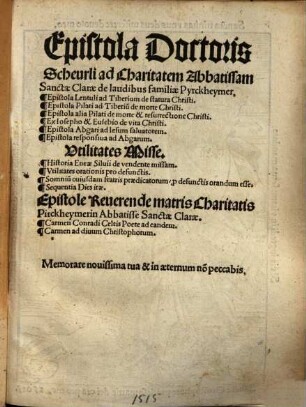 Epistola Doctoris
Scheurli ad Charitatem Abbatissam
Sanctæ Claræ de laudibus familiæ Pyrckheymer,
¶Epistola Lentuli ad Tiberium de statura Christi.
¶Epistola Pilati ad Tiberiũ de morte Christi.
¶Epistola alia Pilati de morte & resurrectione Christi.
¶Ex Iosepho & Eusebio de vita Christi.
¶Epistola Abgari ad Iesum saluatorem.
¶Epistola responsiua ad Abgarum.
Vtilitates Misse.
¶Historia Eneæ Siluii de vendente missam.
¶Vtilitates orationis pro defunctis.
¶Somniũ cuiusdam fratris prædicatorum, ꝓ defunctis orandum esse.
¶Sequentia Dies iræ.
Epistole Reuerende matris Charitatis
Pirckheymerin Abbatisse Sanctæ Claræ.
¶Carmen Conradi Celtis Poete ad eandem.
¶Carmen ad diuum Christophorum.
Memorare nouissima tua & in æternum nõ peccabis.
1515